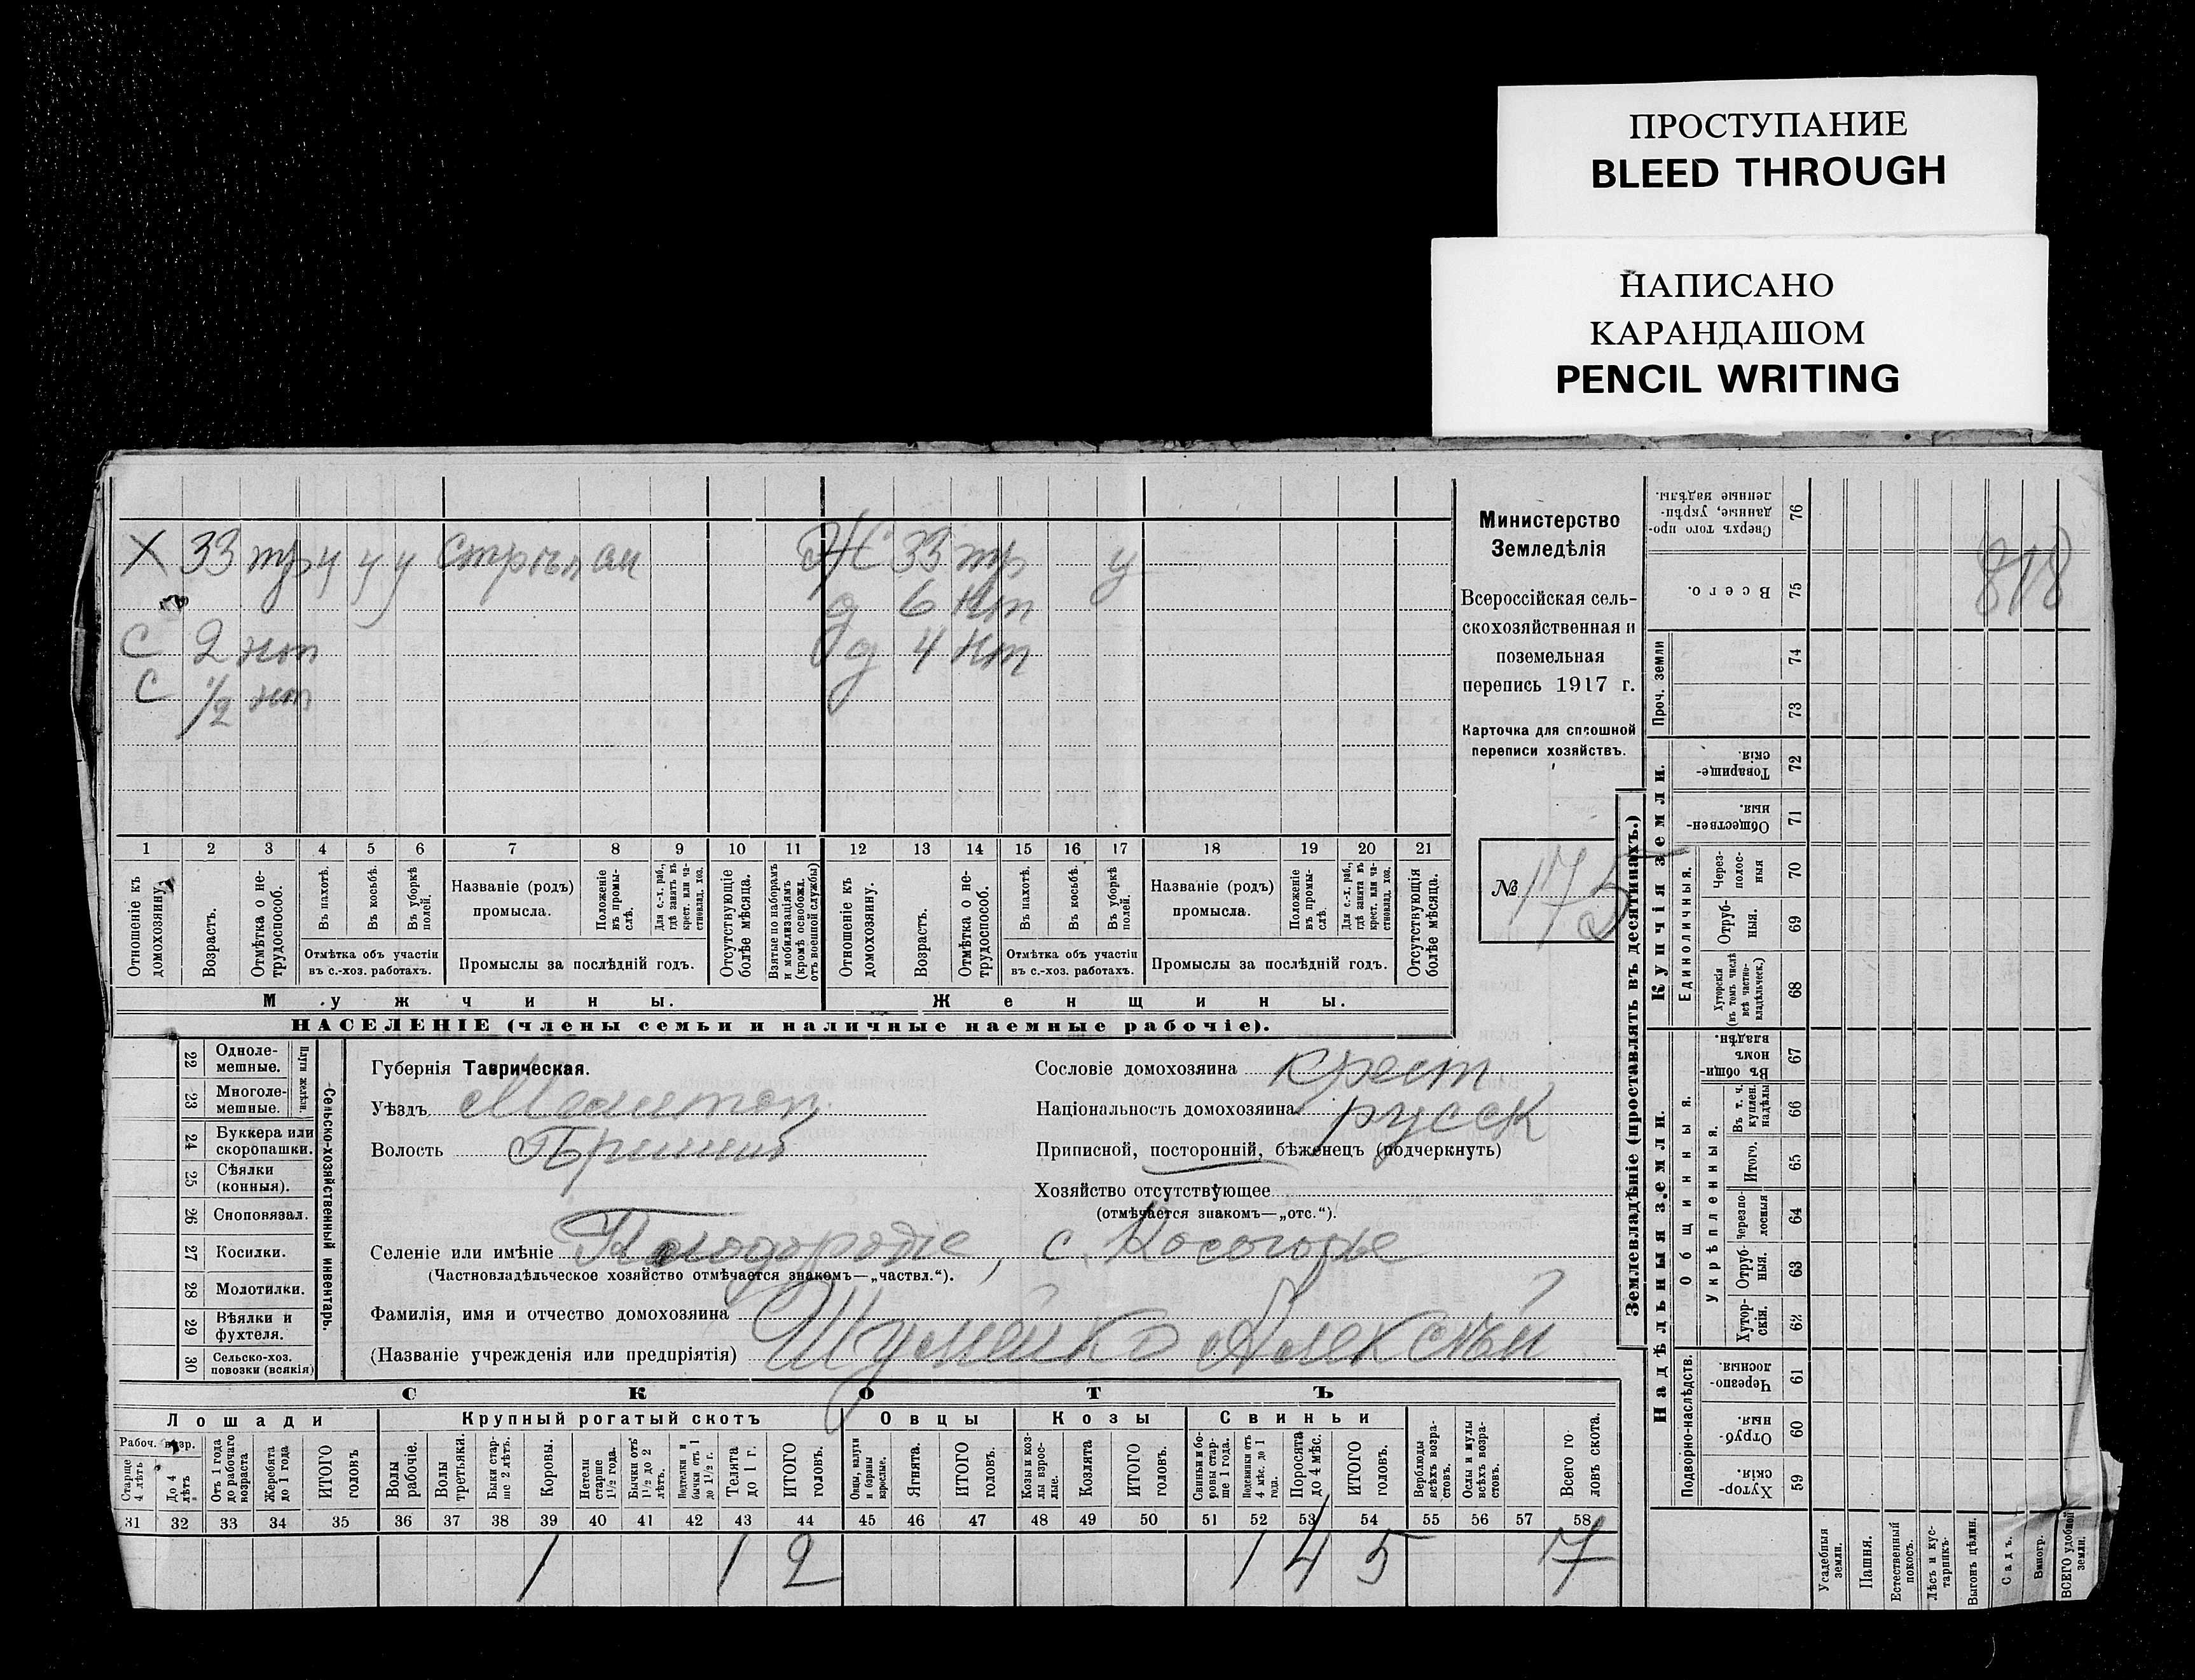 ПРОСТУПАНИЕ
BLEED THROUGH
НАПИСАНО
КАРАНДАШОМ
PENCIL WRITING
Х 33 тр у у у Ж 33 тр у
д 6 нт
С 2 нт д 4 нт
С 1/2 нт
1 2 3 4 5 6 7 8 9 10 11 12 13 14 15 16 17 18 19 20 21
Отношеніе къ домохозяину.
Возрастъ.
Отмѣтка о не-трудоспособ.
Въ пахотѣ.
Въ косьбѣ.
Въ уборкѣ полей.
Отмѣтка объ участіи
въ с.-хоз. работахъ.
Названіе (родъ)
промысла.
Положеніе въ промы-слѣ.
Для с.-х. раб., гдѣ занятъ въ крест. или ча-стновлад. хоз.
Промыслы за послѣдній годъ.
Отсутствующіе болѣе мѣсяца.
Взятые по наборамъ и мобилизаціямъ (кромѣ освобожд. отъ военной службы)
Отношеніе къ домохозяину.
Возрастъ.
Отмѣтка о не-трудоспособ.
Въ пахотѣ.
Въ косьбѣ.
Въ уборкѣ полей.
Отмѣтка объ участіи
въ с.-хоз. работахъ.
Названіе (родъ)
промысла.
Положеніе въ промы-слѣ.
Для с.-х. раб., гдѣ занята въ крест. или ча-стновлад. хоз.
Промыслы за послѣдній годъ.
Отсутствующія болѣе мѣсяца.
Мужчины.
Женщины.
НАСЕЛЕНІЕ (члены семьи и наличные наемные рабочіе).
Министерство
Земледѣлія
Всероссійская сель-
скохозяйственная и
поземельная
перепись 1917 г.
Карточка для сплошной
переписи хозяйствъ.
№ 175
22 Одноле-мешные.
23 Многоле-мешные.
Плуги желѣзн.
24 Буккера или скоропашки.
25 Сѣялки (конныя).
26 Сноповязал.
27 Косилки.
28 Молотилки.
29 Вѣялки и фухтеля.
30 Сельско-хоз. повозки (всякія)
Сельско-хозяйственный инвентарь.
Губернія Таврическая.
Уѣздъ Мелитоп.
Волость
Селеніе или имѣніе , с.
(Частновладѣльческое хозяйство отмѣчается знакомъ—„частвл.“).
Фамилія, имя и отчество домохозяина
(Названіе учрежденія или предпріятія) Шумейко Алексѣй
Сословіе домохозяина крест
Національность домохозяина русск
Приписной, посторонній, бѣженецъ (подчеркнуть)
Хозяйство отсутствующее
(отмѣчается знакомъ—„отс.“).
СКОТЪ
Лошади
Рабоч. возр.
Старше 4 лѣтъ
До 4 лѣтъ
Отъ 1 года до рабочаго возраста
Жеребята до 1 года
ИТОГО головъ
Крупный рогатый скотъ
Волы рабочіе.
Волы третьяки.
Быки стар-ше 2 лѣтъ.
Коровы.
Нетели старше 1½ года.
Бычки отъ 1½ до 2 лѣтъ.
Подтелки и бычки отъ 1 до 1½ г.
Телята до 1 г.
ИТОГО головъ.
Овцы
Овцы, валухи и бараны взрослые.
Ягнята.
ИТОГО головъ.
Козы
Козы и коз-лы взрос-лые.
Козлята
ИТОГО головъ.
Свиньи
Свиньи и бо-ровы стар-ше 1 года.
Подсвинки отъ 4 мѣс. до 1 года.
Поросята до 4 мѣс.
ИТОГО головъ.
Верблюды всѣхъ возра-стовъ.
Ослы и мулы всѣхъ возра-стовъ.
Всего го-ловъ скота.
31 32 33 34 35 36 37 38 39 40 41 42 43 44 45 46 47 48 49 50 51 52 53 54 55 56 57 58
1 1 2 1 4 5 7
Землевладѣніе (проставлять въ десятинахъ.)
Сверхъ того про-данные, укрѣп-ленные надѣлы. 76
Всего. 75
818
Проч. земли
74
73
Купчія земли.
Товарище-скія 72
Обществен-ныя. 71
Единоличныя.
Через-полос-ныя 70
Отруб-ныя. 69
Хуторскія (въ томъ числѣ всѣ частно-владѣльческ.) 68
Надѣльныя земли.
Общинныя.
Въ общи-номъ владѣн. 67
Укрѣпленныя.
Въ т. ч. куплен. надѣлы 66
Итого. 65
Черезпо-лосныя 64
Отруб-ныя. 63
Хутор-скія. 62
Подворно-наслѣдств.
Черезпо-лосныя. 61
Отруб-ныя. 60
Хутор-скія. 59
Усадебныя земли.
Пашня.
Естественный покосъ.
Лѣсъ и кус-тарникъ.
Выгонъ цѣлин.
Садъ.
Виногр.
ВСЕГО удобной земли.